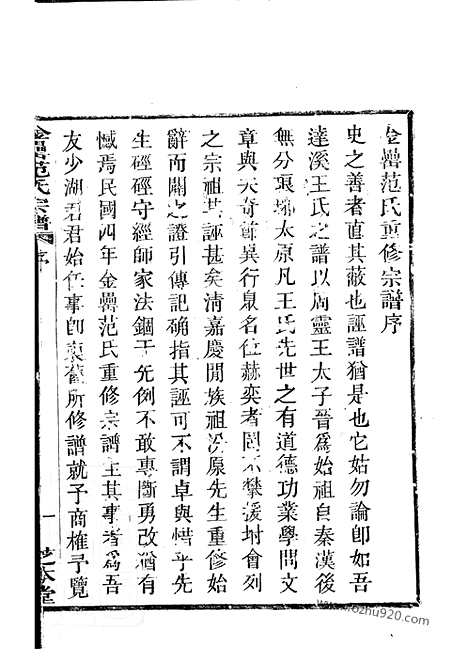 金罍范氏重修宗譜序
史之善者直其蔽也誣譜猶是也它姑勿論卽如吾
達溪王氏之譜以周靈王太子晉爲始祖自秦漢後
無分琅琊太原凡王氏先世之有道德功業學問文
章與夫奇節異行泉名位赫奕者罔不攀援坿會列
之宗祖其誣甚矣清嘉慶閒族祖 原先生重修始
辭而闢之證引傳記确指其誣可不謂卓與惜乎先
生硜硜守經師家法錮于先例不敢專斷勇改猶有
憾焉民國四年金罍范氏重修宗譜主其事者爲吾
友少湖君君始任事卽裒舊所修譜就予商榷予覽
金罍范氏宗譜 序
一
本堂
www.rozhu920.com